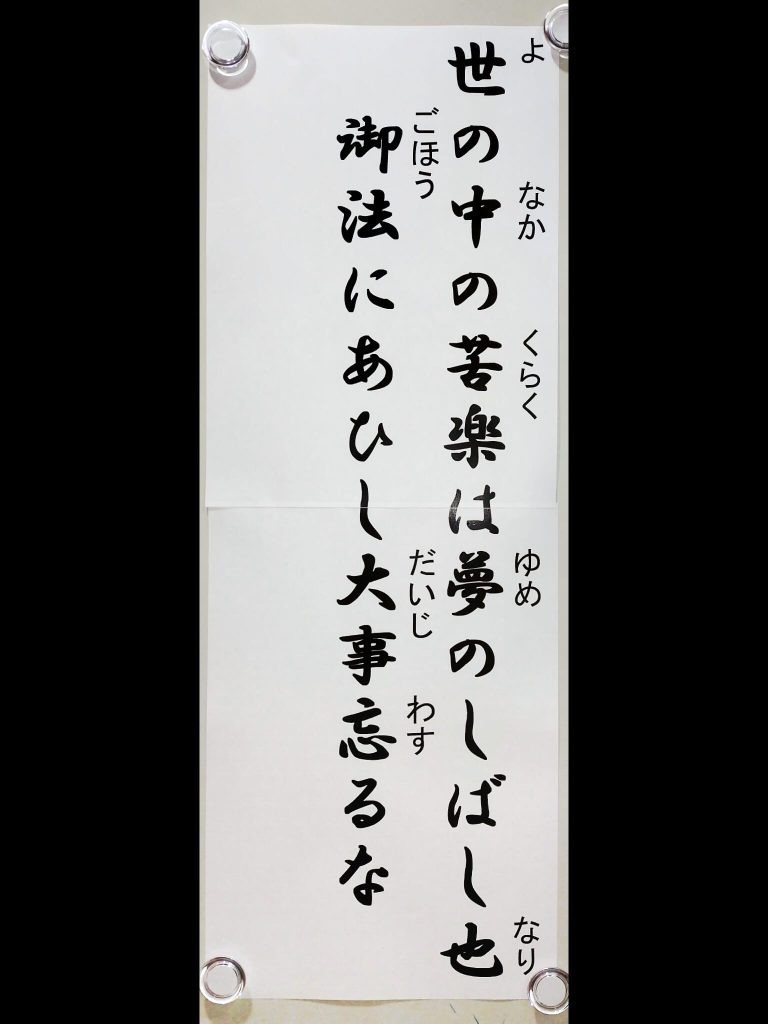 よ なか くらく ゆめ なり
世の中の苦楽は夢のしばし也
ごほう だいじ わす
御法にあひし大事忘るな